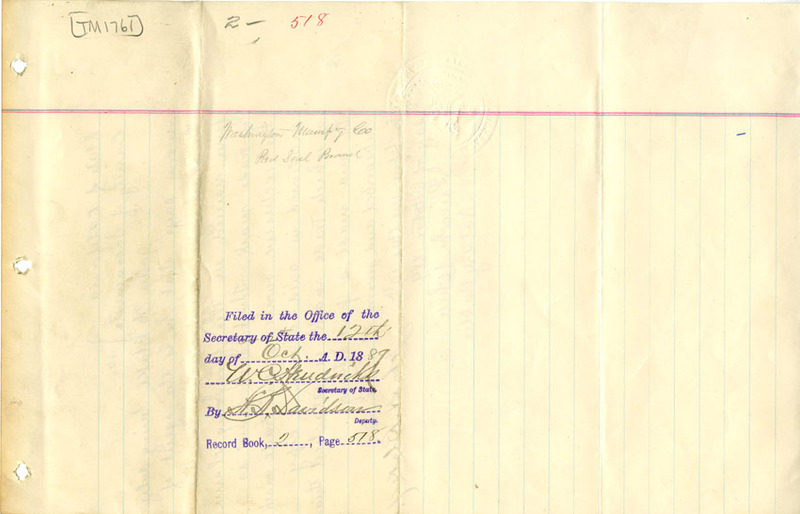 [TM1761]
2 - 518
Washington Manf'g Co
Red Seal Brand
Filed in the Office of the
Secretary of State the 12th
day of Oct. A. D. 1887
W. C. Hendricks
Secretary of State.
By Davidson
Deputy.
Record Book, 2, Page 518